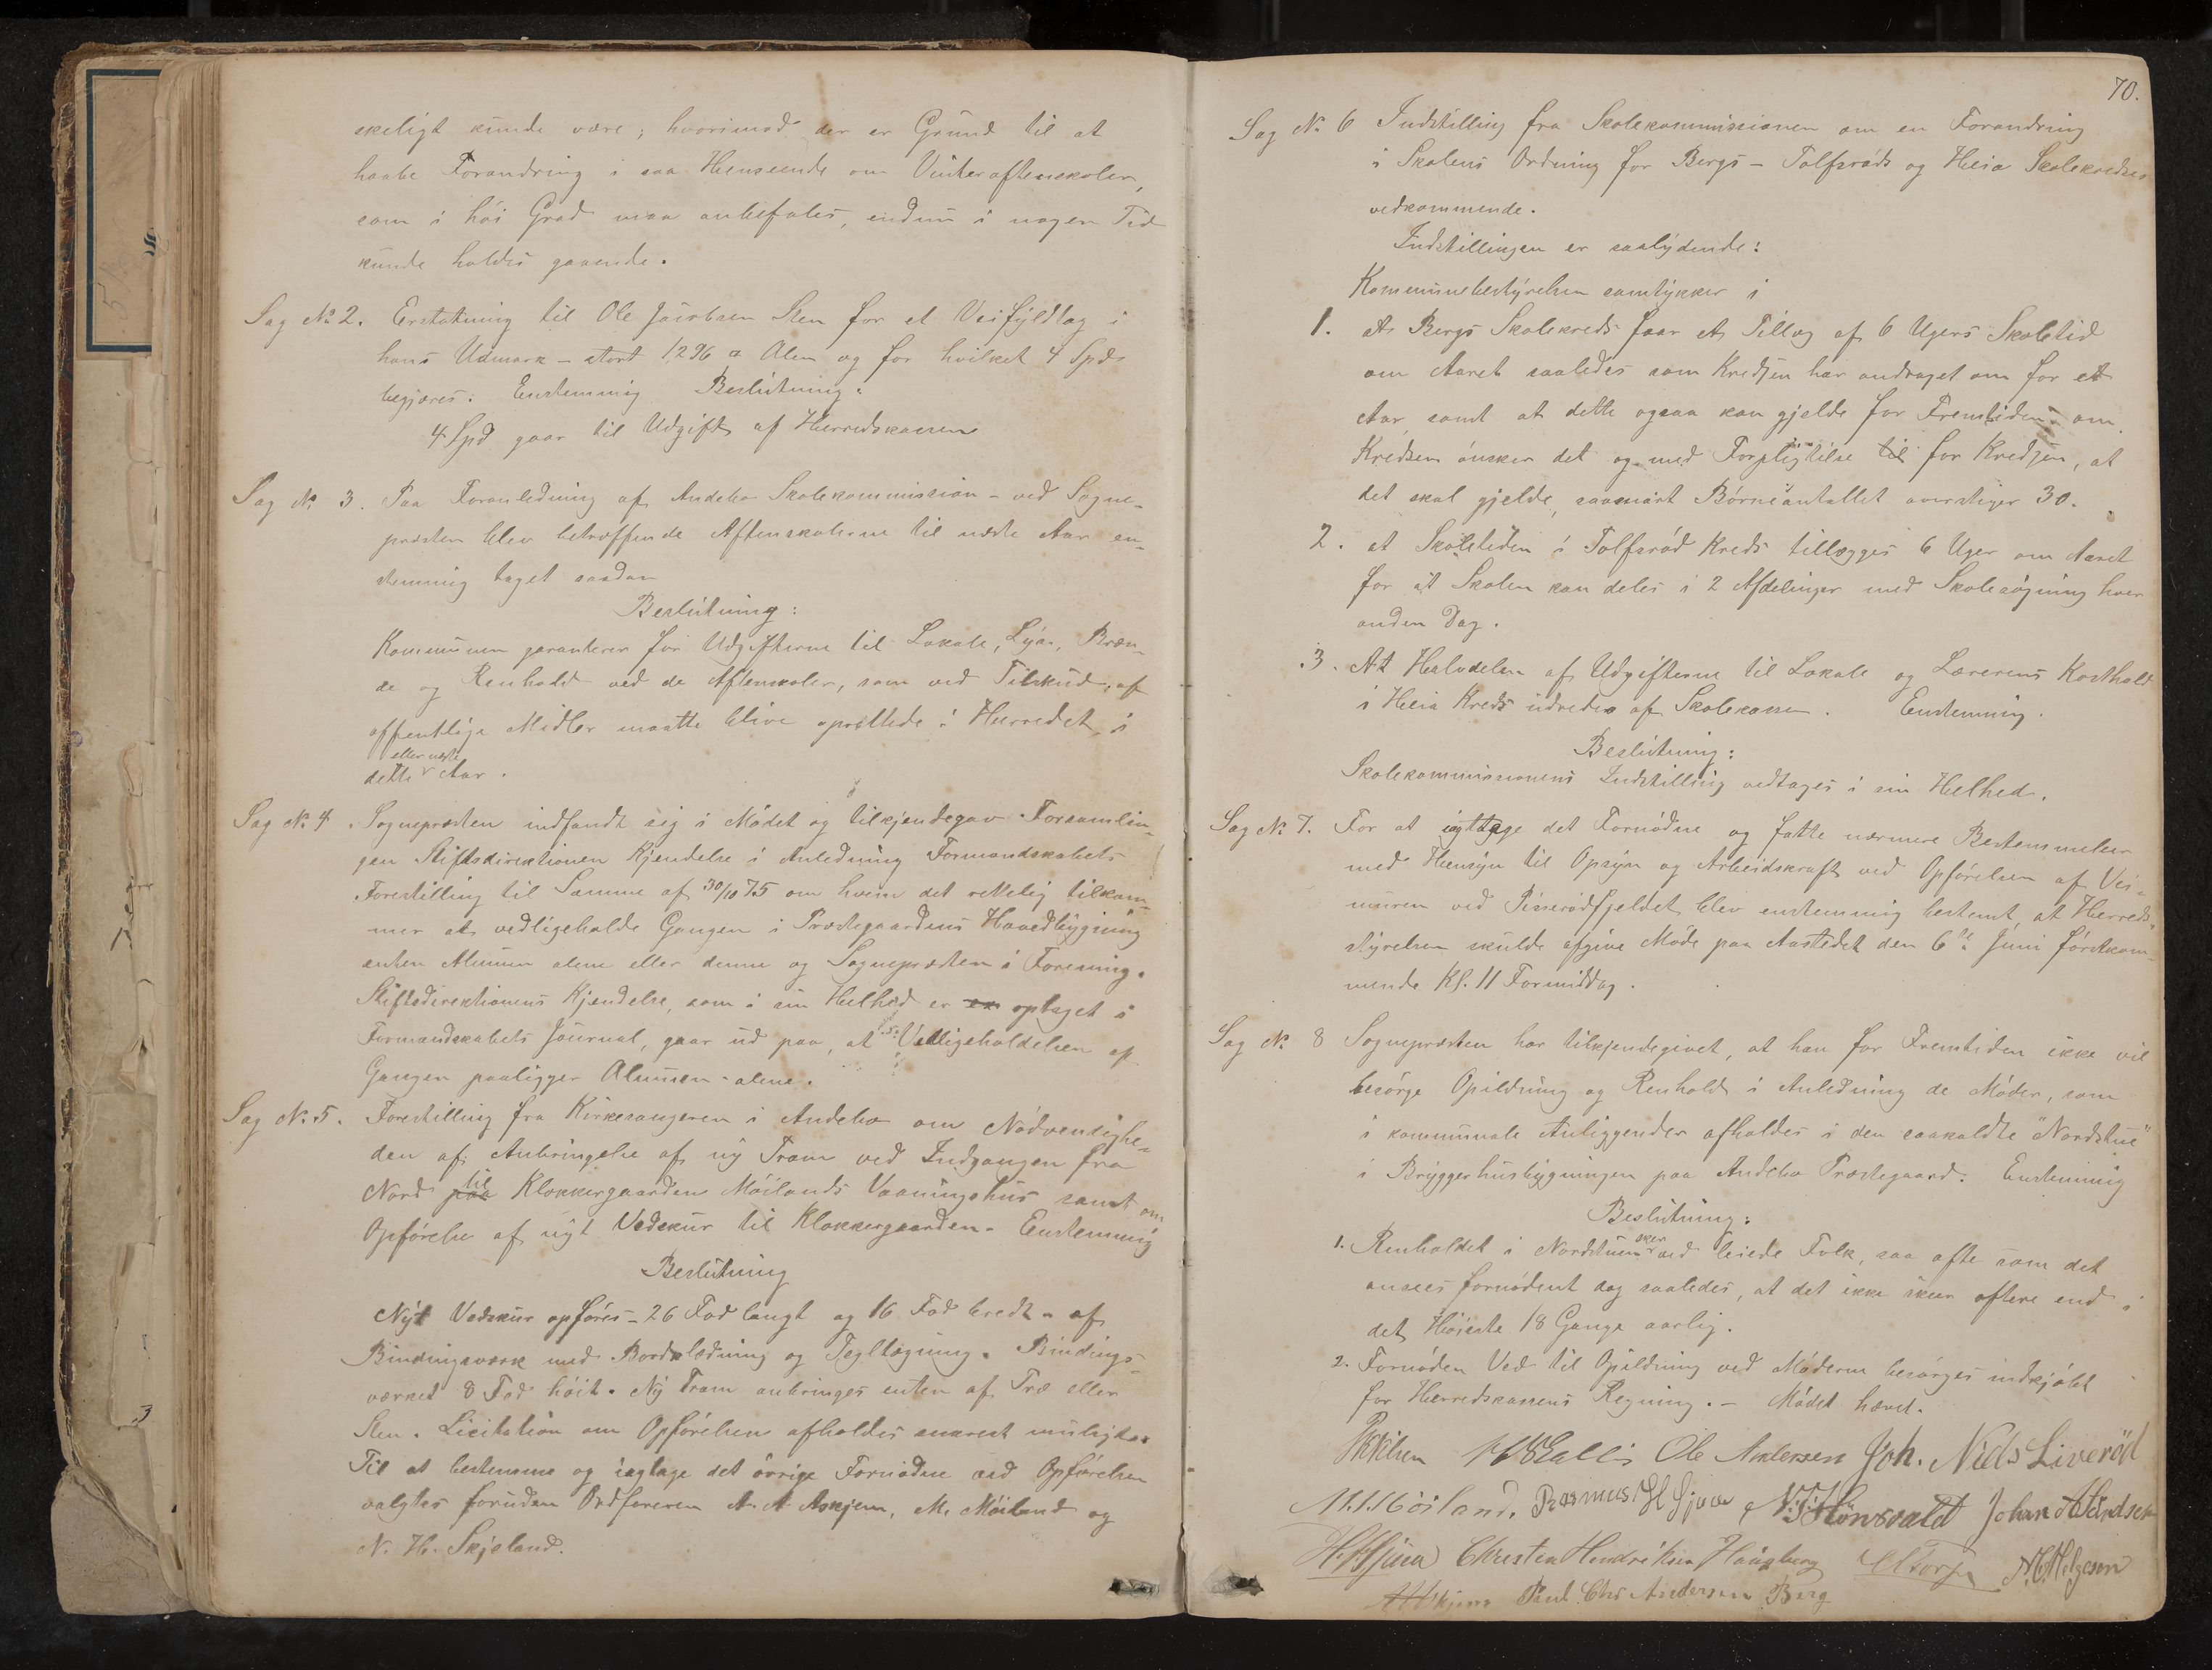 skeligt kunde være; hvorimod der er Grund til at
haabe Forandring i saa Henseende om Vinteraftenskolen,
som i høi Grad maa anbefales, endnu i nogen Tid
kunde holdes gaaende.
Sag No 2. Erstatning til Ole Jacobsen Sten for et Veifyldtag i
hans Udmark - stort 1296 □ Alen og for hvilket 4 Spd.
begjæres. Enstemmig Beslutning:
4 Spd gaar til Udgift af Herredskassen
Sag No 3. Paa Foranledning af Andebo Skolekommission - ved Sogne-
præsten blev betræffende Aftenskolerne til næste Aar en-
stemmig taget saadan
Beslutning:
Kommunen garanterer for Udgifterne til Lokale, Lys, Bræn-
de og Renhold ved de Aftenskoler, som ved Tilskud af
offentlige Midler maatte blive oprettede i Herredet i
eller næste
dette Aar.
Sag No 4. Sognepræsten indfandt sig i Mødet og tilkjendegav Forsamlin-
gen Stiftsdirektionen Kjendelse i Anledning Formandskabets
Forestilling til Samme af 30/10 75 om hvem det rettelig tilkom-
mer at vedligeholde Gangen i Præstegaardens Hovedbygning
enten Almuen alene eller denne og Sognepræsten i Forening.
Stiftsdirektionens Kjendelse, som i sin Helhed er optaget i
Formandskabets Journal, gaar ud paa, at Vedligeholdelsen af
Gangen paaligger Almuen - alene.
Sag No. 5. Forestilling fra Kirkesangeren i Andebo om Nødvendighe-
den af Anbringelse af ny Tram ved Indgangen fra
Nord paa til Klokkergaarden Møilands Vaaningshus samt om
Opførelse af nyt Vedskur til Klokkergaarden. Enstemmig
Beslutning
Nyt Vedskur opføres - 26 Fod langt og 16 Fod bredt - af
Bindingsværk med Bordklædning og Tegltagning. Bindings-
værket 8 Fod høit. Ny Tram anbringes enten af Træ eller
Sten. Licitation om Opførelsen afholdes snarest muligt.
Til at bestemme og iagtage det øvrige Fornødne ved Opførelsen
valgtes foruden Ordføreren A. A. Askjem, M. Møiland og
N. H. Skjeland.
70.
Sag No 6 Indstilling fra Skolekommissionen om en Forandring
i Skolens Ordning for Bergs - Tolfsrøds og Heia Skolekredse
vedkommende.
Indstillingen er saalydende:
Kommunebestyrelsen samtykker i
1. at Bergs Skolekreds faar et Tillæg af 6 Ugers Skoletid
om Aaret saaledes som Kredsen har andraget om for et
Aar, samt at dette ogsaa kan gjelde for Fremtiden om
Kredsen ønsker det og med Forpligtelse til for Kredsen, at
det skal gjelde, saasnart Børneantallet overstiger 30.
2. at Skoletiden i Tolfsrød Kreds tillægges 6 Uger om Aaret
for at Skolen kan deles i 2 Afdelinger med Skolesøgning hver
anden Dag.
3. At Halvdelen af Udgifterne til Lokale og Lærerens Kosthold
i Heia Kreds udredes af Skolekassen. Enstemmig.
Beslutning:
Skolekommissionens Indstilling vedtages i sin Helhed.
Sag No 7. For at iagttage det Fornødne og fatte nærmere Bestemmelser
med Hensyn til Opsyn og Arbeidskraft ved Opførelsen af Vei-
muren ved Pisserødfjeldet blev enstemmig bestemt, at Herreds-
styrelsen skulde afgive Møde paa Aastedet den 6te Juni førstkom-
mende Kl. 11 Formiddag.
Sag No 8 Sognepræsten har tilkjendegivet, at han for Fremtiden ikke vil
besørge Opildning og Renhold i Anledning de Møder, som
i kommunale Anliggender afholdes i den saakaldte "Nordstue"
i Bryggerhusbygningen paa Andebo Præstegaard. Enstemmig
Beslutning:
1. Renholdet i Nordstuen sker ved leiede Folk, saa ofte som det
ansees fornødent dog saaledes, at det ikke sker oftere end i
det Høieste 18 Gange aarlig.
2. Fornøden Ved til Opildning ved Møderne besørges indkjøbt
for Herredskassens Regning. - Mødet hævet.
Ole Andersen Joh. Niels Liverød
M. Møiland. Rasmus H Gjøva N. T. Hønsvald Johan A Lindsek
H. Gjøva Christen Hendriksen Haugberg CTorp A. Helgesen
AAAskjem Paul Chr Andersen Berg